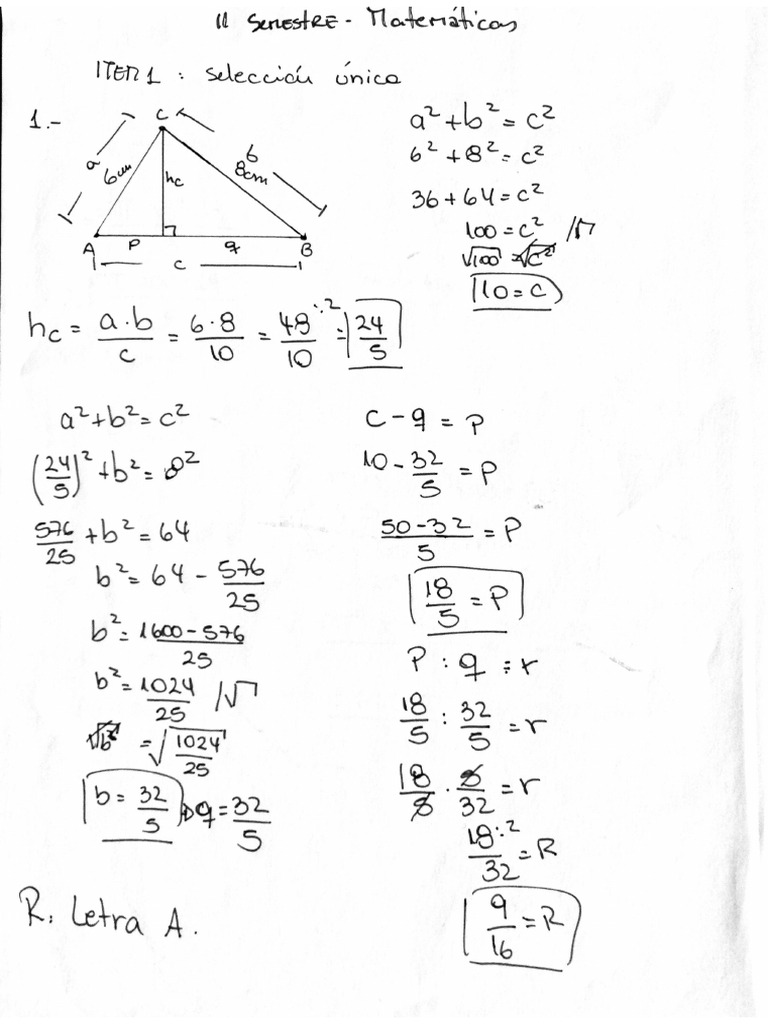 11 Semestre - Matemáticas
ITEM 1 : Selección única
1.-
C
a
6cm
b
8cm
hc
A
p
q
B
c
a² + b² = c²
6² + 8² = c²
36 + 64 = c²
100 = c² /√
√100 = √c²
10 = c
hc = a·b/c = 6·8/10 = 48/10 :2 = 24/5
a² + b² = c²
(24/5)² + b² = 8²
576/25 + b² = 64
b² = 64 - 576/25
b² = 1600 - 576/25
b² = 1024/25 /√
√b² = √1024/25
b = 32/5 → q = 32/5
R: Letra A.
c - q = P
10 - 32/5 = P
50 - 32/5 = P
18/5 = P
P : q = r
18/5 : 32/5 = r
18/5 · 5/32 = r
18/32 :2 = R
9/16 = R